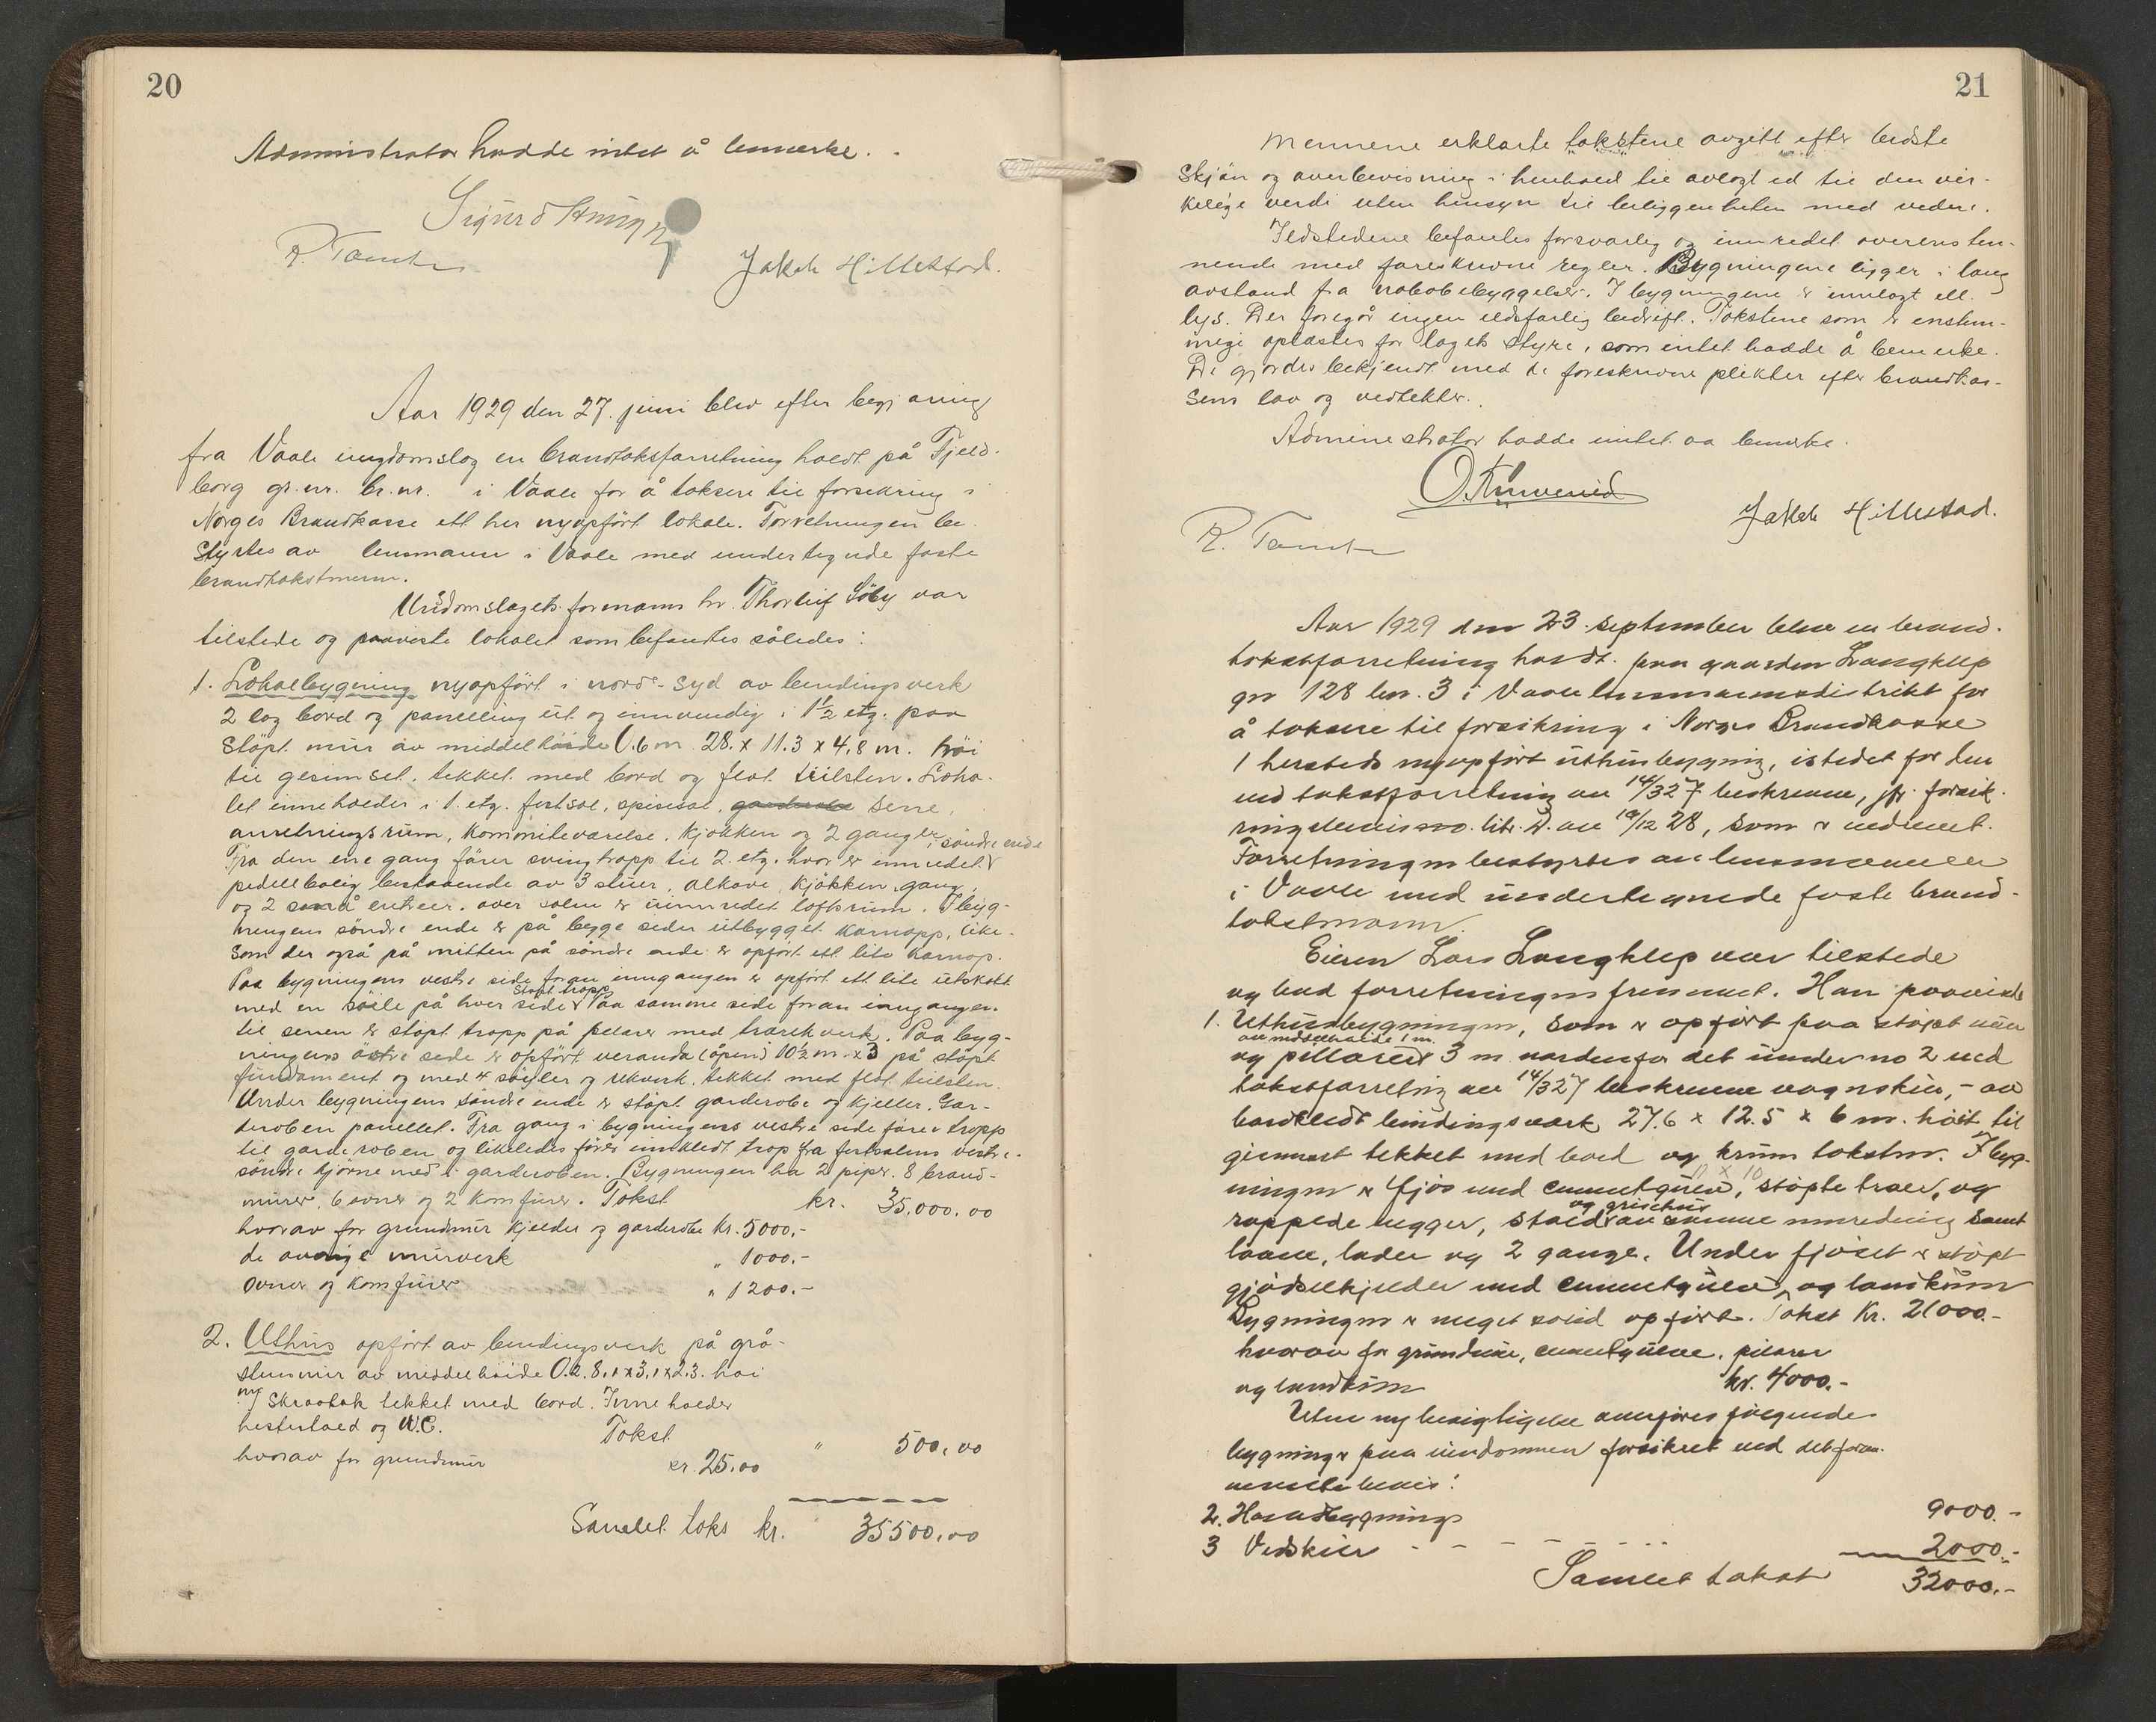 20
Administrator hadde intet å bemerke.
Sigurd
R. Jakob Hillestad.
Aar 1929 den 27. juni blev efter begjæring
fra Vaale ungdomslag en brandtakstforretning holdt på Fjeld-
borg gr.nr. br.nr. i Vaale for å taksere til forsikring i
Norges Brandkasse ett her nyopført lokale. Forretningen be-
styrtes av lensmann i Vaale med undertegnede faste
brandtakstmenn.
Undomslagets formann hr. Thorleif Söby var
tilstede og paaviste lokalet som befantes således:
1. Lokalebygning nyopført i nord-syd av bindingsverk
2 lag bord og panelling ut og innvendig i 1½ etg. paa
støpt mur av middelhøide 0.6 m 28. x 11.3 x 4,8 m. høi
til gesimset. tekket med bord og flat teilsten. Loka-
let inneholder i 1. etg. festsal, spisesal, garderobe sene,
anretningsrum, kommiteværelse, kjøkken og 2 ganger i søndre ende
Fra den ene gang fører svingtrapp til 2. etg. hvor er innredet
pedellbolig bestaaende av 3 stuer, alkove, kjøkken, gang,
og 2 små entreer. over salen er uinnredet loftsrum. I byg-
ningens søndre ende er på begge sider utbygget karnapp, like-
som der også på mitten på søndre ende er opført ett lite karnap.
Paa bygningens vestre side foran inngangen er opført ett lite utskott
med en søile på hver side støpt trapp Paa samme side foran inngangen
til scenen er støpt trapp på pelarer med trærekverk. Paa byg-
ningens østre side er opført veranda (åpen) 10½ m. x 3 på støpt
fundament og med 4 søyler og rekverk. tekket med flat teilsten.
Under bygningens søndre ende er støpt garderobe og kjeller. Gar-
deroben panellet. Fra gang i bygningens vestre side fører tropp
til garderoben og likeledes fører innkledt trop fra festsalens vestre-
søndre hjørne ned i garderoben. Bygningen har 2 piper. 8 brand-
murer, 6 ovner og 2 komfurer. Takst kr. 35.000.00
hvorav for grundmur kjelder og garderobe kr. 5000.-
de øvrige murverk „ 1000.-
Ovner og Komfurer „ 1200.-
2. Uthus opført av bindingsverk på grå-
stensmur av middelhøide 0.2. 8,1 x 3,1 x 2,3. høi
m/ skraatak tekket med bord. Inneholder
hestestald og W.C. Takst „ 500,00
hvorav for grundmur kr. 25.00
Samlet taks kr. 35500,00
21
Mennene erklærte takstene avgitt efter bedste
Skjøn og overbevisning i henhold til avlagt ed til den vir-
kelige verdi uten hensyn til beliggenheten med videre.
Ildstedene befantes forsvarlig og innredet overensstem-
mende med foreskrevne regler. Bygningene ligger i lang
avstand fra nabobebyggelse. I bygningene er innlagt ell.
lys. Der foregår ingen ildsfarlig bedrift. Takstene som er enstem-
mige oplæstes for lagets styre, som intet hadde å bemerke.
De gjordes bekjendt med de foreskrevne plikter efter brandkas-
sens lov og vedtekter.
Administrator hadde intet aa bemerke.
R. Jakob Hillestad.
Aar 1929 den 23 september blev en brand-
takstforretning holdt paa gaarden Langklep
gn 128 bn. 3 i Vaale lensmannsdistrikt for
å taksere til forsikring i Norges Brandkasse
1 hersteds nyopført uthusbygning, istedet for den
ved takstforretning av 14/3 27 beskrevne, jfr. forsik-
ringsbevis no. litr. D. av 10/12 28, som er nedrevet.
Forretningen bestyrtes av lensmannen
i Vaale med undertegnede faste brand-
takstmenn.
Eieren Lars Langklep var tilstede
og bad forretningen fremmet. Han paaviste
1. Uthusbygningen, som er opført paa støpt mur
av middelhøide 1 m.
og pillarer 3 m. nordenfor det under no 2 ved
takstforretning av 14/3 27 beskrevne vognskur, - av
bordkledt bindingsverk 27.6 x 12.5 x 6 m. høit til
gjennest tekket med bord og krum taksten. I byg-
ningen er fjøs med cementgulv, 17 x 10 støpte baser, og
rappede vegger, stald og grisehus av samme innredning samt
laave, lader og 2 gange. Under fjøset er støpt
gjødselkjelder med cementgulv og landkum
Bygningen er meget solid opført. Takst Kr. 21000.-
hvorav for grundmur, cementgulve, pilarer
og landkum kr. 4000.-
Uten ny besigtigelse anføres følgende
bygninger paa eiendommen forsikret ved det foran
nevnte bevis:
2. Hovedbygnings 9000.-
3 Vedskur - - - - - 2000.-
Samlet takst 32000.-